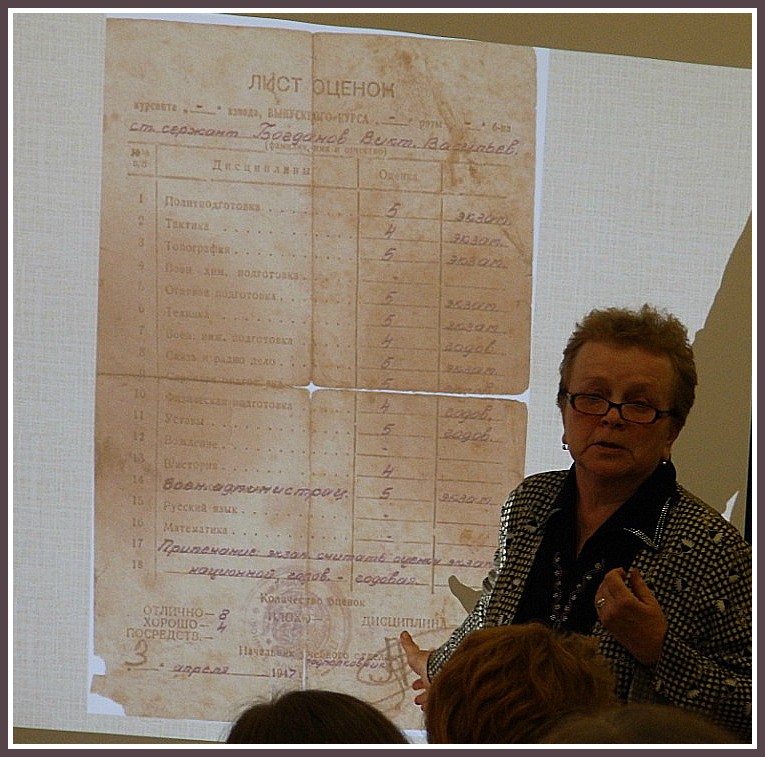 ЛИСТ ОЦЕНОК
курсанта „ – “ взвода, ВЫПУСКНОГО КУРСА „ – “ роты „ – “ б-на
ст. сержант Богданов Викт. Васильев.
(фамилия, имя и отчество)
№№ п/п Дисциплины Оценка
1 Политподготовка 5 экзам.
2 Тактика 4 экзам.
3 Топография 5 экзам.
4 Воен. хим. подготовка -
5 Огневая подготовка 5 экзам.
6 Техника 5 экзам.
7 Воен. инж. подготовка 4 годов.
8 Связь и радио дело 5 экзам.
9 5
10 Физическая подготовка 4 годов.
11 Уставы 5 годов.
12 Вождение -
13 В/история 4
14 Воен. администрац. 5 экзам.
15 Русский язык -
16 Математика -
17 Примечание: экзам. считать оценки экзам
18 национной, годов. – годовая.
Количество оценок
ОТЛИЧНО – 8
ХОРОШО – 4 ПЛОХО – ДИСЦИПЛИНА
ПОСРЕДСТВ. –
Начальник учебного отдела
подполковник
„3“ апреля 1947